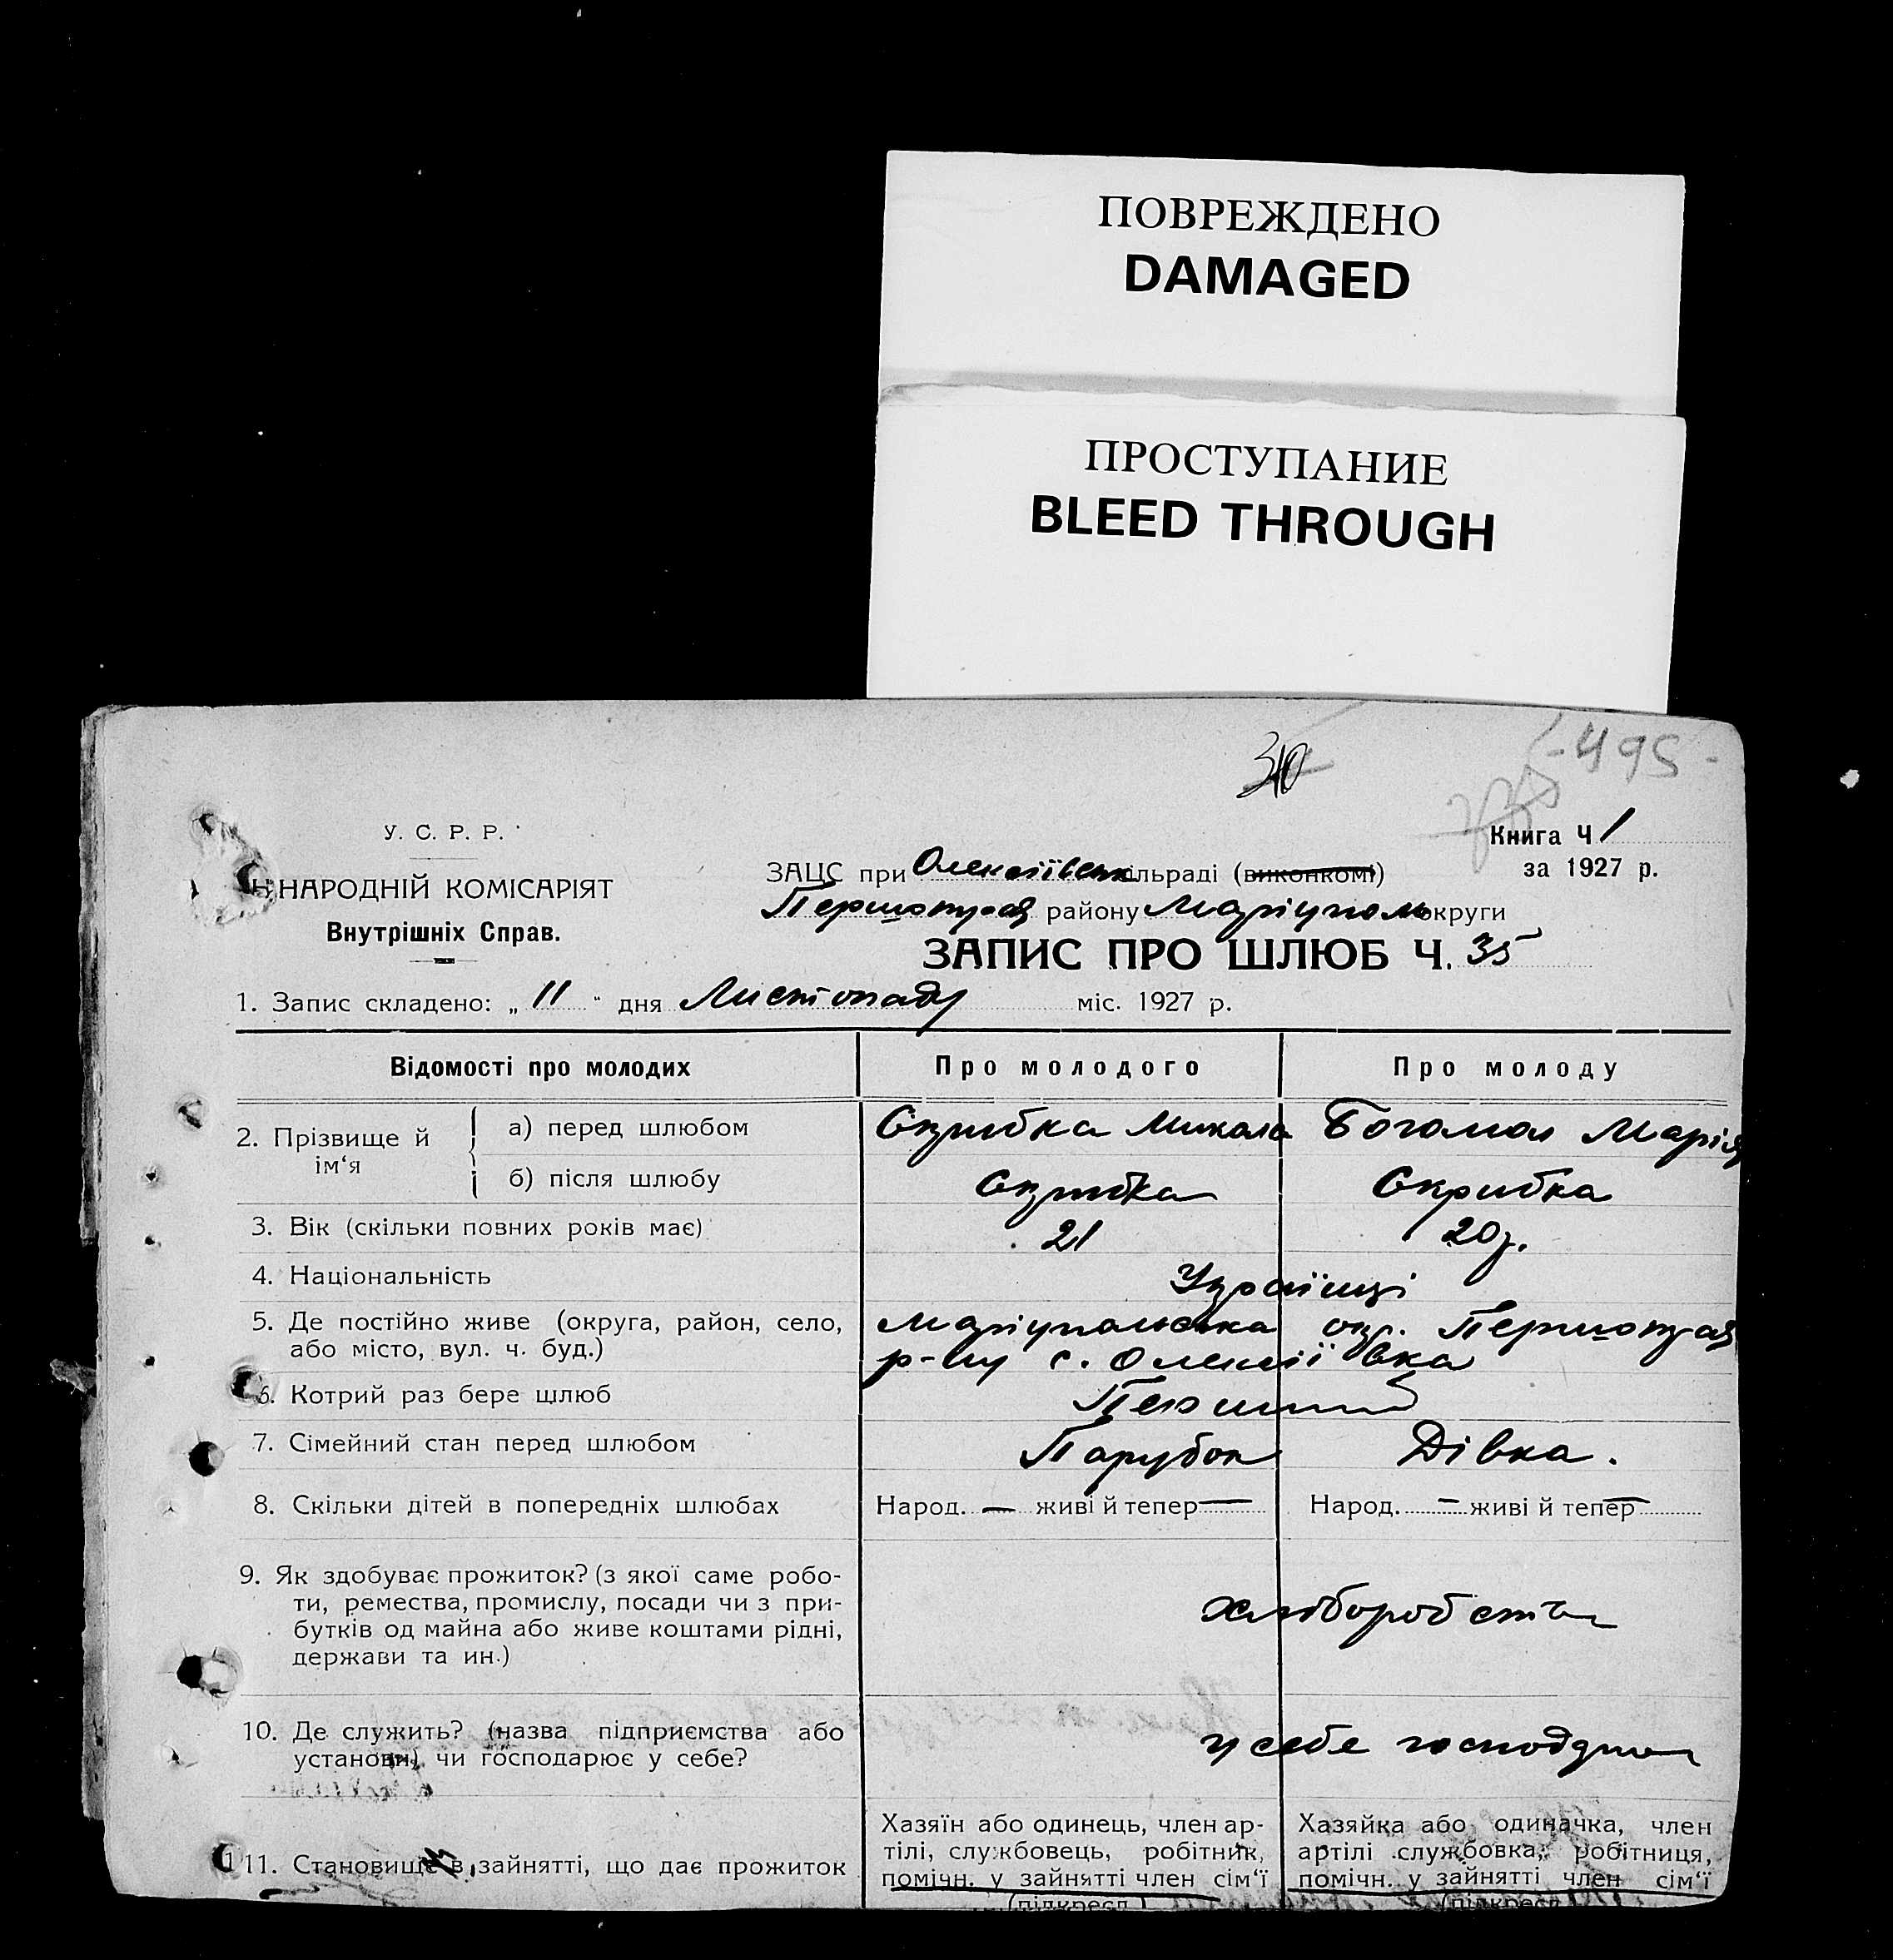 ПОВРЕЖДЕНО
DAMAGED
ПРОСТУПАНИЕ
BLEED THROUGH
-495-
У. С. Р. Р.
НАРОДНІЙ КОМІСАРІЯТ
Внутрішніх Справ.
Книга Ч 1
за 1927 р.
ЗАЦС при Олексіївськ ільраді (виконкомі)
Першотрав району Маріуполь округи
ЗАПИС ПРО ШЛЮБ Ч. 35
1. Запис складено: „ 11 “ дня Листопаду міс. 1927 р.
Відомості про молодих Про молодого Про молоду
2. Прізвище й ім‘я
а) перед шлюбом Скрибка Микола Богомол Марія
б) після шлюбу Скрибка Скрибка
3. Вік (скільки повних років має) 21 20 р.
4. Національність Українці
5. Де постійно живе (округа, район, село,
або місто, вул. ч. буд.)
Маріупольська окр. Першотрав
р-ну с. Олексіївка
6. Котрий раз бере шлюб Перший
7. Сімейний стан перед шлюбом Парубок Дівка.
8. Скільки дітей в попередніх шлюбах Народ. — живі й тепер — Народ. — живі й тепер —
9. Як здобуває прожиток? (з якої саме робо-
ти, ремества, промислу, посади чи з при-
бутків од майна або живе коштами рідні,
держави та ин.)
хліборобства
10. Де служить? (назва підприємства або
установи) чи господарює у себе?
у себе
11. Становище в зайнятті, що дає прожиток
Хазяїн або одинець, член ар-
тілі, службовець, робітник,
помічн. у зайнятті член сім‘ї
(підкресл.)
Хазяйка або одиначка, член
артілі службовка, робітниця,
помічн. у зайнятті член сім‘ї
(підкресл.